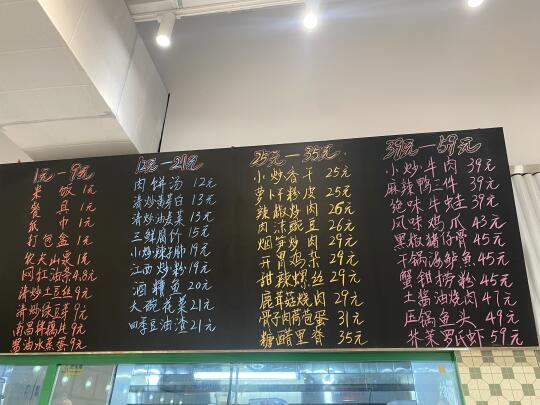 1元—9元
米饭 1元
餐具 1元
纸巾 1元
打包盒 1元
农夫山泉 1元
网红油条 4.8元
清炒土豆丝 9元
清炒绿豆芽 9元
南昌拌藕片 9元
酱油水蒸蛋 9元
12元—21元
肉饼汤 12元
清炒 13元
清炒油麦菜 13元
三鲜腐竹 15元
小炒辣子脚 19元
江西炒粉 19元
酒糟鱼 20元
大碗花菜 21元
四季豆油渣 21元
25元—35元
小炒香干 25元
萝卜干粉皮 25元
辣椒炒肉 26元
肉沫豌豆 26元
烟笋炒肉 29元
开胃鸡杂 29元
甜辣螺丝 29元
鹿茸菇烧肉 29元
骨子肉茼蒿蛋 31元
糖醋里脊 35元
39元—59元
小炒牛肉 39元
麻辣鸭三件 39元
绝味牛蛙 39元
风味鸡爪 43元
黑椒猪仔骨 45元
干锅海鲈鱼 45元
蟹钳捞粉 45元
土酱油烧肉 47元
压锅鱼头 49元
芥菜罗氏虾 59元